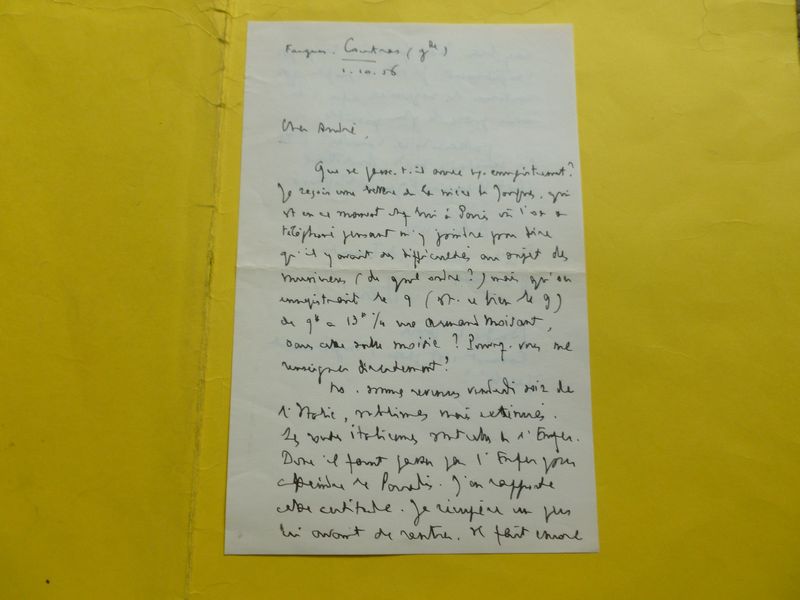 Fargues. Coutras (gde)
1.10.56
Cher André,
Que se passe-t-il avec enregistrement?
Je reçois une lettre de la mère de Jacques, qui
est en ce moment chez lui à Paris où l'on a
téléphoné pensant m'y joindre pour dire
qu'il y avait des difficultés au sujet des
musiciens (de quel ordre?) mais qu'on
enregistrait le 9 (est-ce bien le 9)
de 9h à 13h rue Armand Moisant,
dans cette sorte ? Pouvez-vous me
renseigner directement?
ns. sommes revenus vendredi soir de
l'Italie, sublimes mais exténués.
Les routes italiennes sont celles de l'Enfer.
Donc il faut passer par l'Enfer pour
atteindre le Paradis. J'en rapporte
cette certitude. Je récupère un peu
ici avant de rentrer. Il fait encore